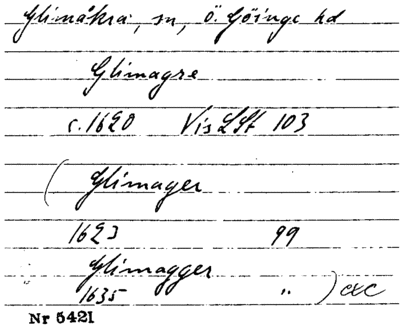 Glimåkra, sn, Ö. Göinge hd
Glimagre
c. 1620 Vis LSt 103
( Glimager
1623 99
" Glimagger
1635 " ) exc
Nr 5421